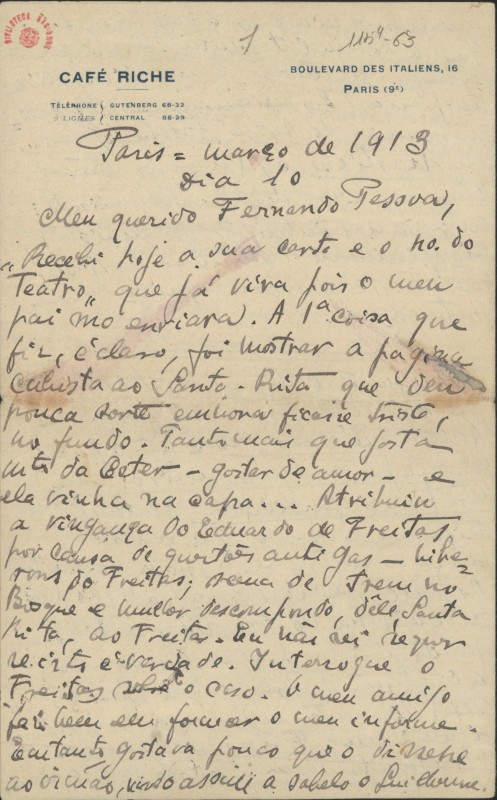 BIBLIOTECA NACIONAL
1
115⁴-63
CAFÉ RICHE
BOULEVARD DES ITALIENS, 16
PARIS (9ᴱ)
TÉLÉPHONE GUTENBERG 68-32
2 LIGNES CENTRAL 86-39
Paris = março de 1913
Dia 10
Meu querido Fernando Pessoa,
Recebi hoje a sua carta e o no. do
"Teatro" que já vira pois o meu
pai mo enviara. A 1ª coisa que
fiz, é claro, foi mostrar a página
ao Santa-Rita que deu
pouca sorte embora ficasse triste,
no fundo. Tanto mais que gosta
mto da Ceter - gostar de amor - e
ela vinha na capa... Atribuiu
a vingança do Eduardo de Freitas
por causa de questões antigas -
do Freitas; de
Bosque e mulher descompondo, dêle, Santa
Rita, ao Freitas. Eu não sei se por
é verdade. Interrogue o
Freitas sobre o caso. O meu amigo
faz bem em fornecer o meu informe.
Emtanto gostava pouco que o dissesse
ao vindo assim a sabelo o Guilherme.